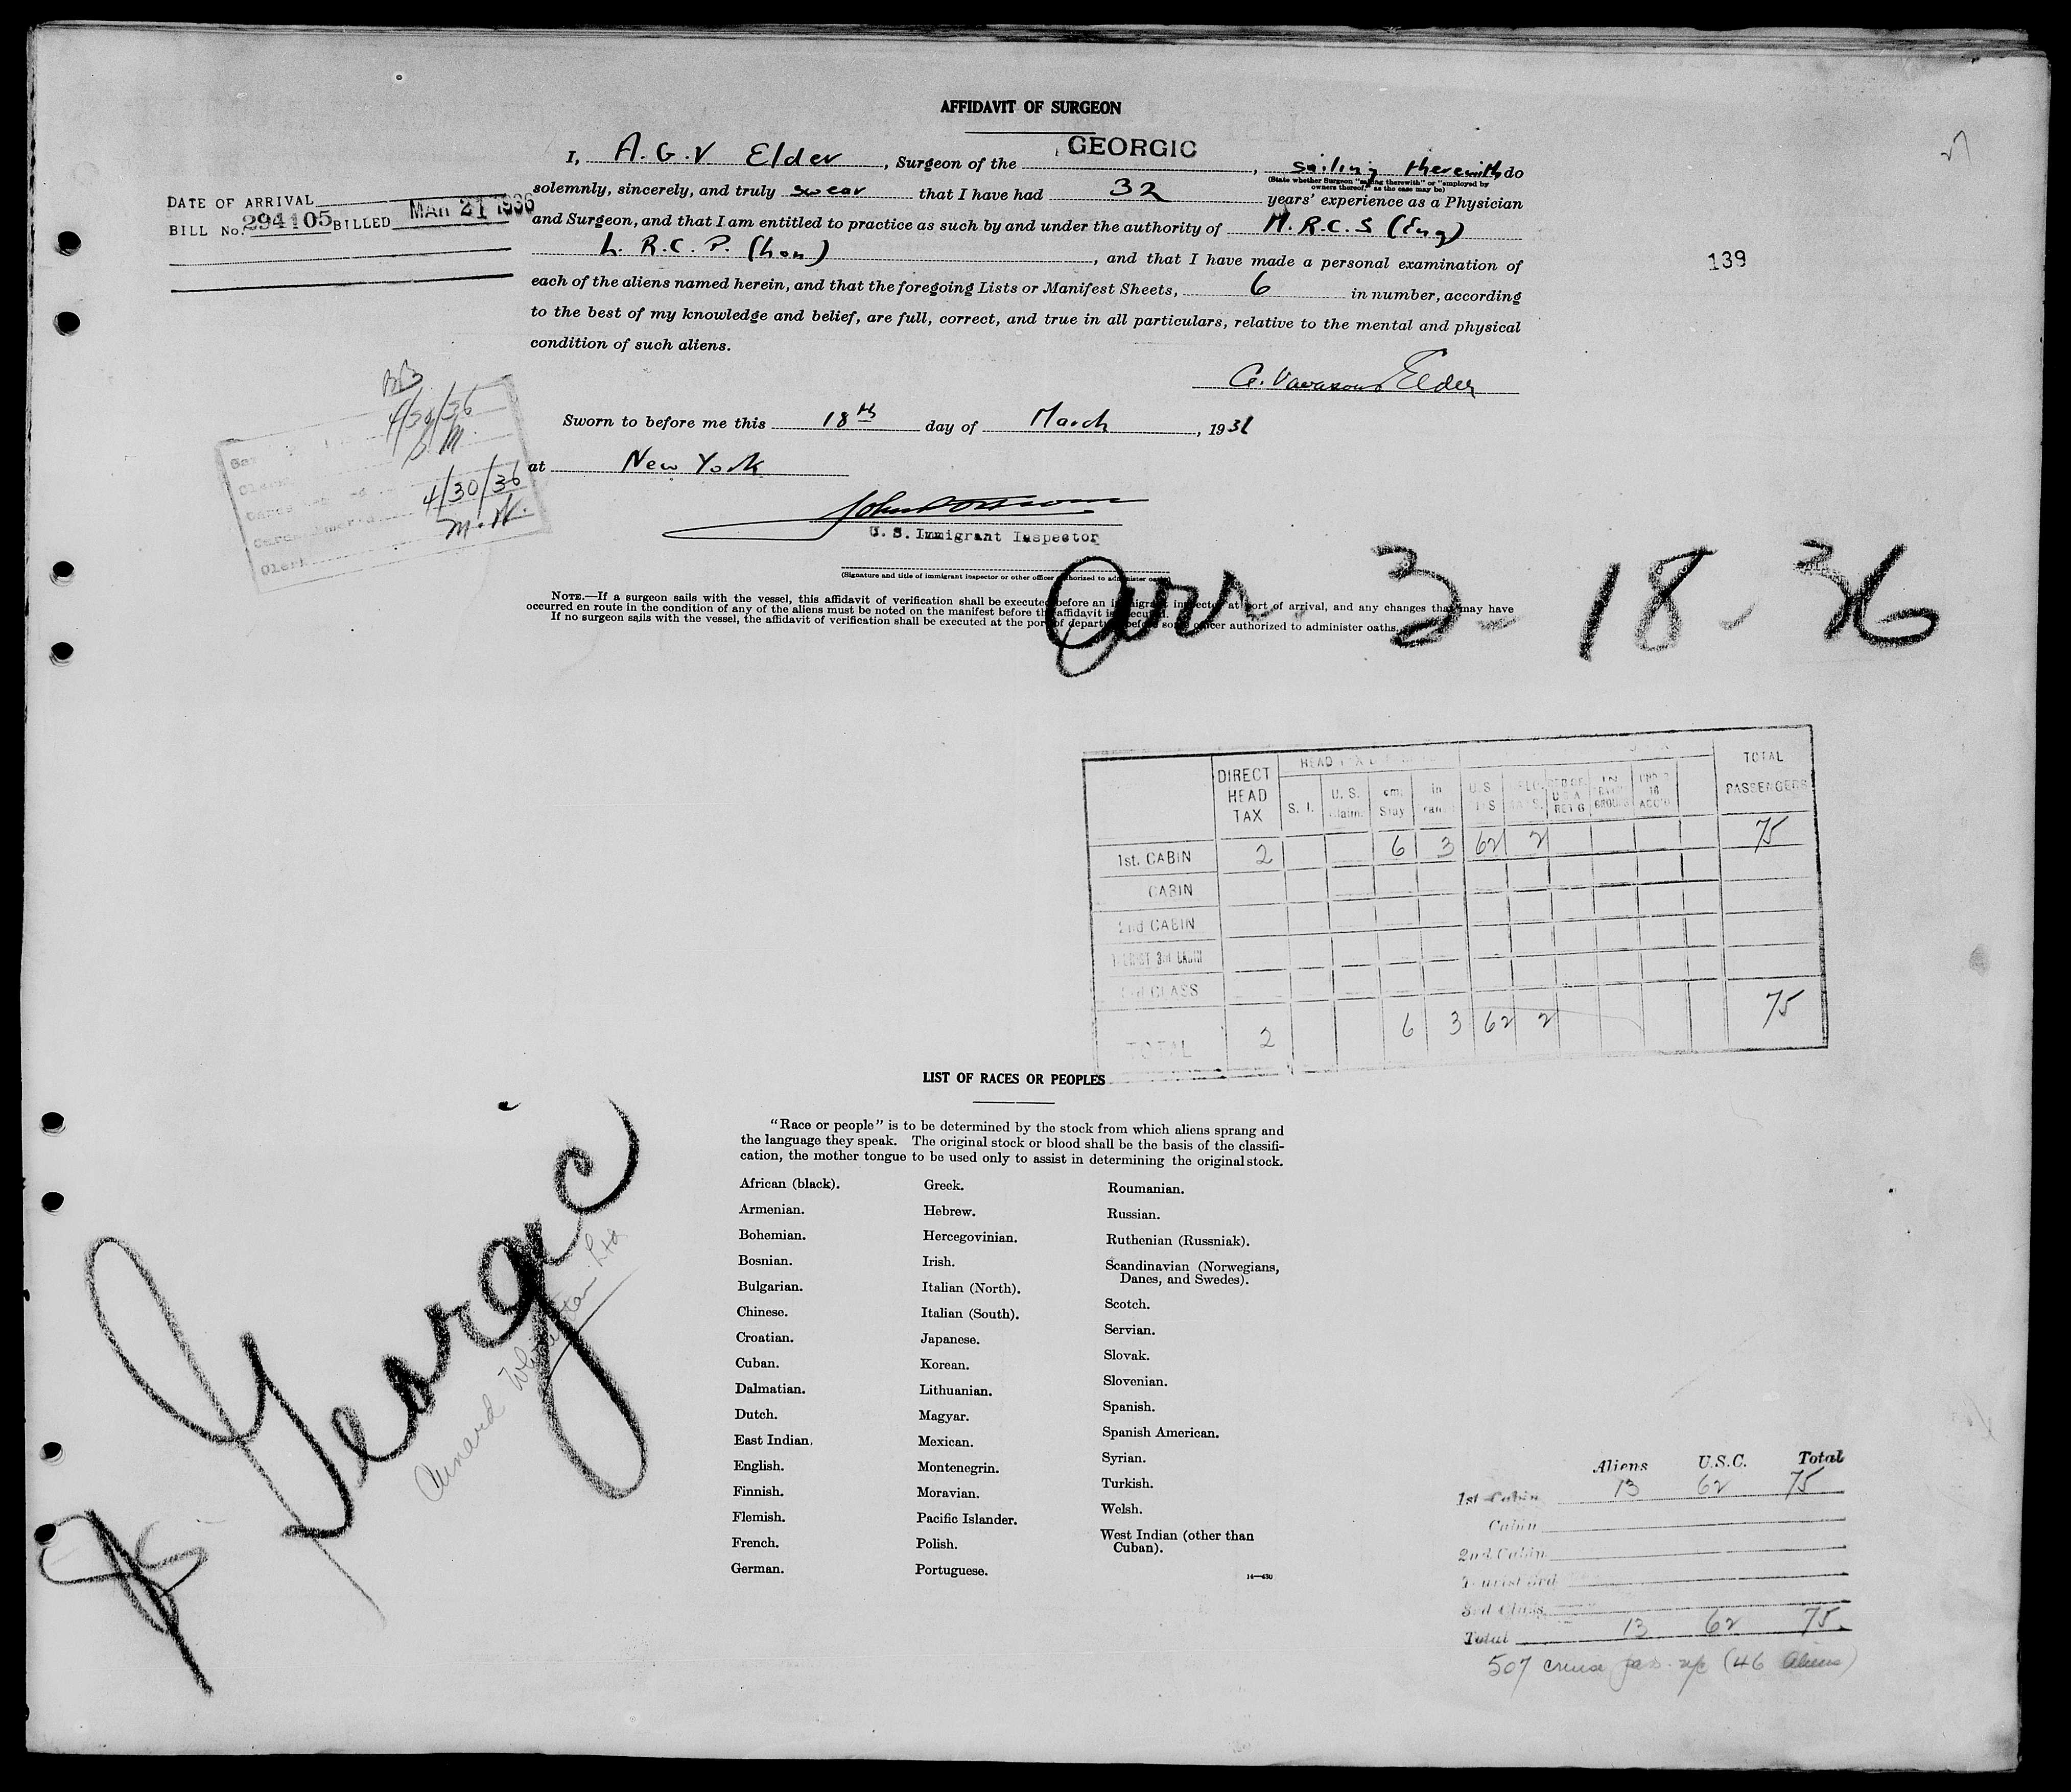 AFFIDAVIT OF SURGEON
I, A. G. V Elder, Surgeon of the GEORGIC, sailing therewith do
(State whether Surgeon "sailing therewith" or "employed by
owners thereof," as the case may be)
solemnly, sincerely, and truly swear that I have had 32 years' experience as a Physician
and Surgeon, and that I am entitled to practice as such by and under the authority of M.R.C.S (Eng)
L. R. C. P. (Lon), and that I have made a personal examination of
each of the aliens named herein, and that the foregoing Lists or Manifest Sheets, 6 in number, according
to the best of my knowledge and belief, are full, correct, and true in all particulars, relative to the mental and physical
condition of such aliens.
DATE OF ARRIVAL
BILL No. 294105 BILLED MAR 21 1936
139
Elder
Sworn to before me this 18th day of March, 1936
at New York
U. S. Immigrant Inspector
(Signature and title of immigrant inspector or other officer authorized to administer oaths)
4/30/36
4/30/36
M.W.
Clerk
NOTE.—If a surgeon sails with the vessel, this affidavit of verification shall be executed before an immigrant inspector at port of arrival, and any changes that may have
occurred en route in the condition of any of the aliens must be noted on the manifest before the affidavit is executed.
If no surgeon sails with the vessel, the affidavit of verification shall be executed at the port of departure before some officer authorized to administer oaths.
Arr. 3-18-36
DIRECT HEAD TAX
HEAD TAX
S. I.
U. S. Claim.
Stay
U.S.
TOTAL PASSENGERS
1st. CABIN 2 6 3 62 2 75
CABIN
2nd CABIN
TOURIST 3rd CABIN
3rd CLASS
TOTAL 2 6 3 62 2 75
LIST OF RACES OR PEOPLES
"Race or people" is to be determined by the stock from which aliens sprang and
the language they speak. The original stock or blood shall be the basis of the classifi-
cation, the mother tongue to be used only to assist in determining the original stock.
African (black).
Armenian.
Bohemian.
Bosnian.
Bulgarian.
Chinese.
Croatian.
Cuban.
Dalmatian.
Dutch.
East Indian.
English.
Finnish.
Flemish.
French.
German.
Greek.
Hebrew.
Hercegovinian.
Irish.
Italian (North).
Italian (South).
Japanese.
Korean.
Lithuanian.
Magyar.
Mexican.
Montenegrin.
Moravian.
Pacific Islander.
Polish.
Portuguese.
Roumanian.
Russian.
Ruthenian (Russniak).
Scandinavian (Norwegians,
Danes, and Swedes).
Scotch.
Servian.
Slovak.
Slovenian.
Spanish.
Spanish American.
Syrian.
Turkish.
Welsh.
West Indian (other than
Cuban).
14—430
Georgic
Cunard White Star Ltd
Aliens U.S.C. Total
1st Cabin 13 62 75
Cabin
2nd Cabin
Tourist 3rd
3rd Class
Total 13 62 75
507 cruise (46 Aliens)